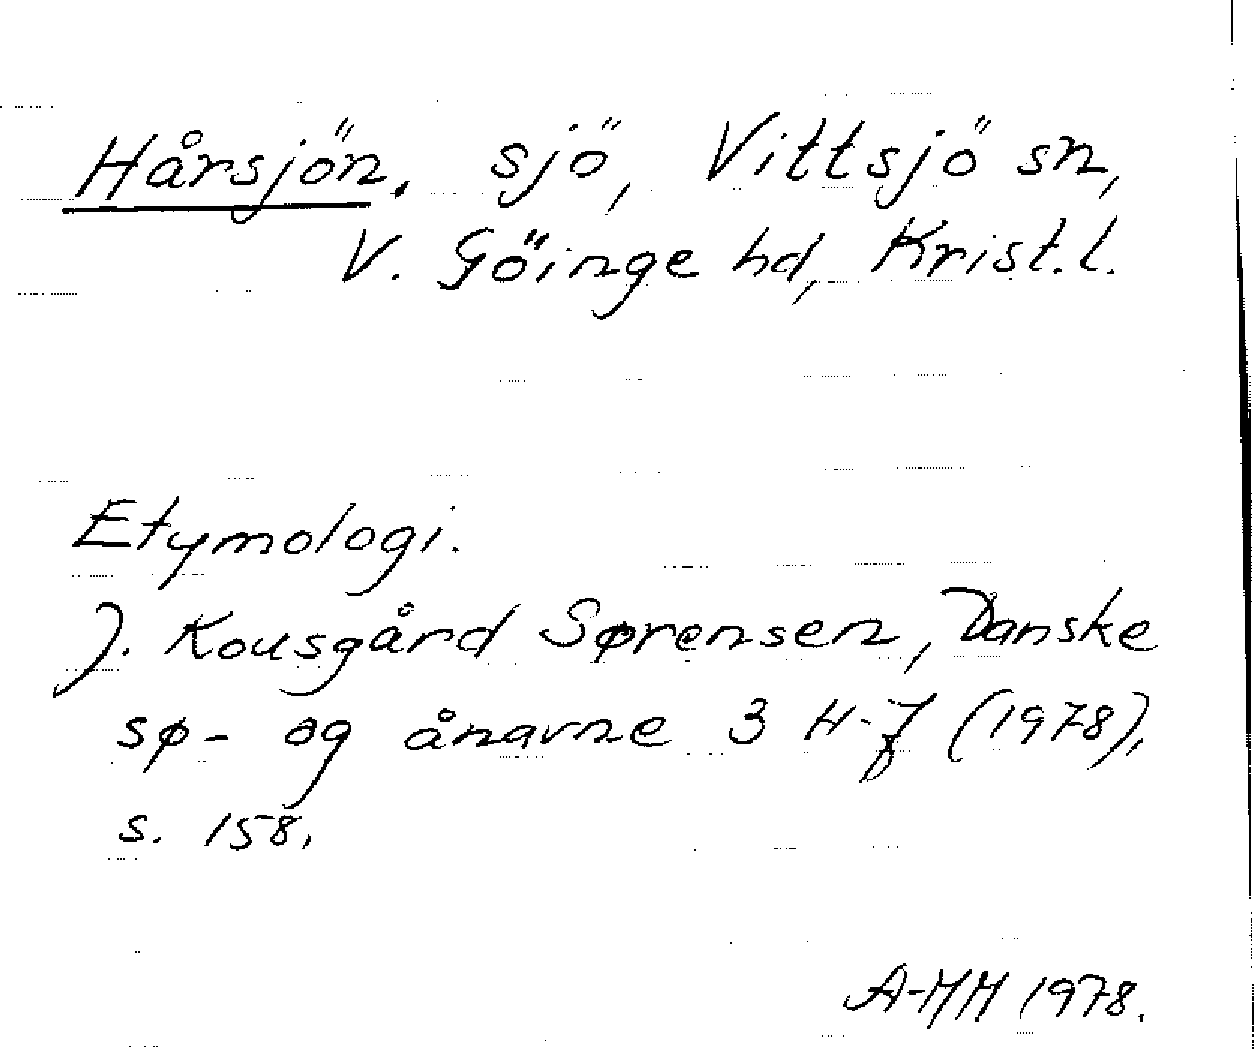 Hårsjön. sjö, Vittsjö sn,
V. Göinge hd, Krist.l.
Etymologi.
J. Kousgård Sørensen, Danske
sø- og ånavne 3 H-J (1978),
s. 158.
A-MH 1978.